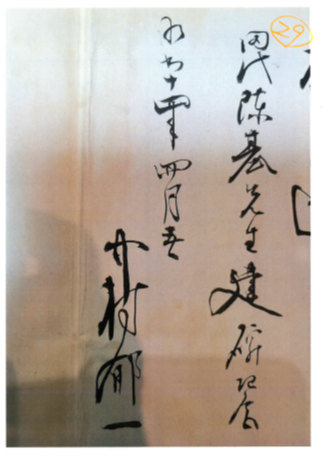 29
田代陳基先生建碑記念
昭和十四年四月五日
中村郁一